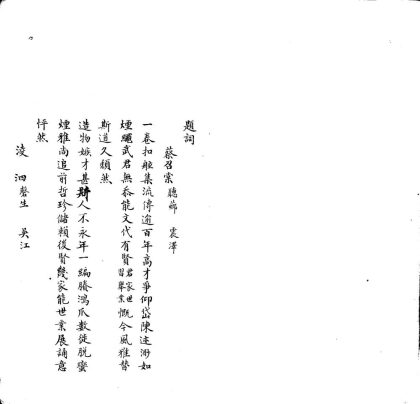 題詞
蔡召棠 聽薌 震澤
一卷扣舷集流傳逾百年高才爭仰岱陳迹渺如
煙繩武君無忝能文代有賢君家世習舉業慨今風雅替
斯道久頽然
造物嫉才甚斯人不永年一編賸鴻爪數徙脫蠻
煙雅尚追前哲珍儲賴後賢幾家能世業展誦意
怦然
淩泗 磬生 吳江